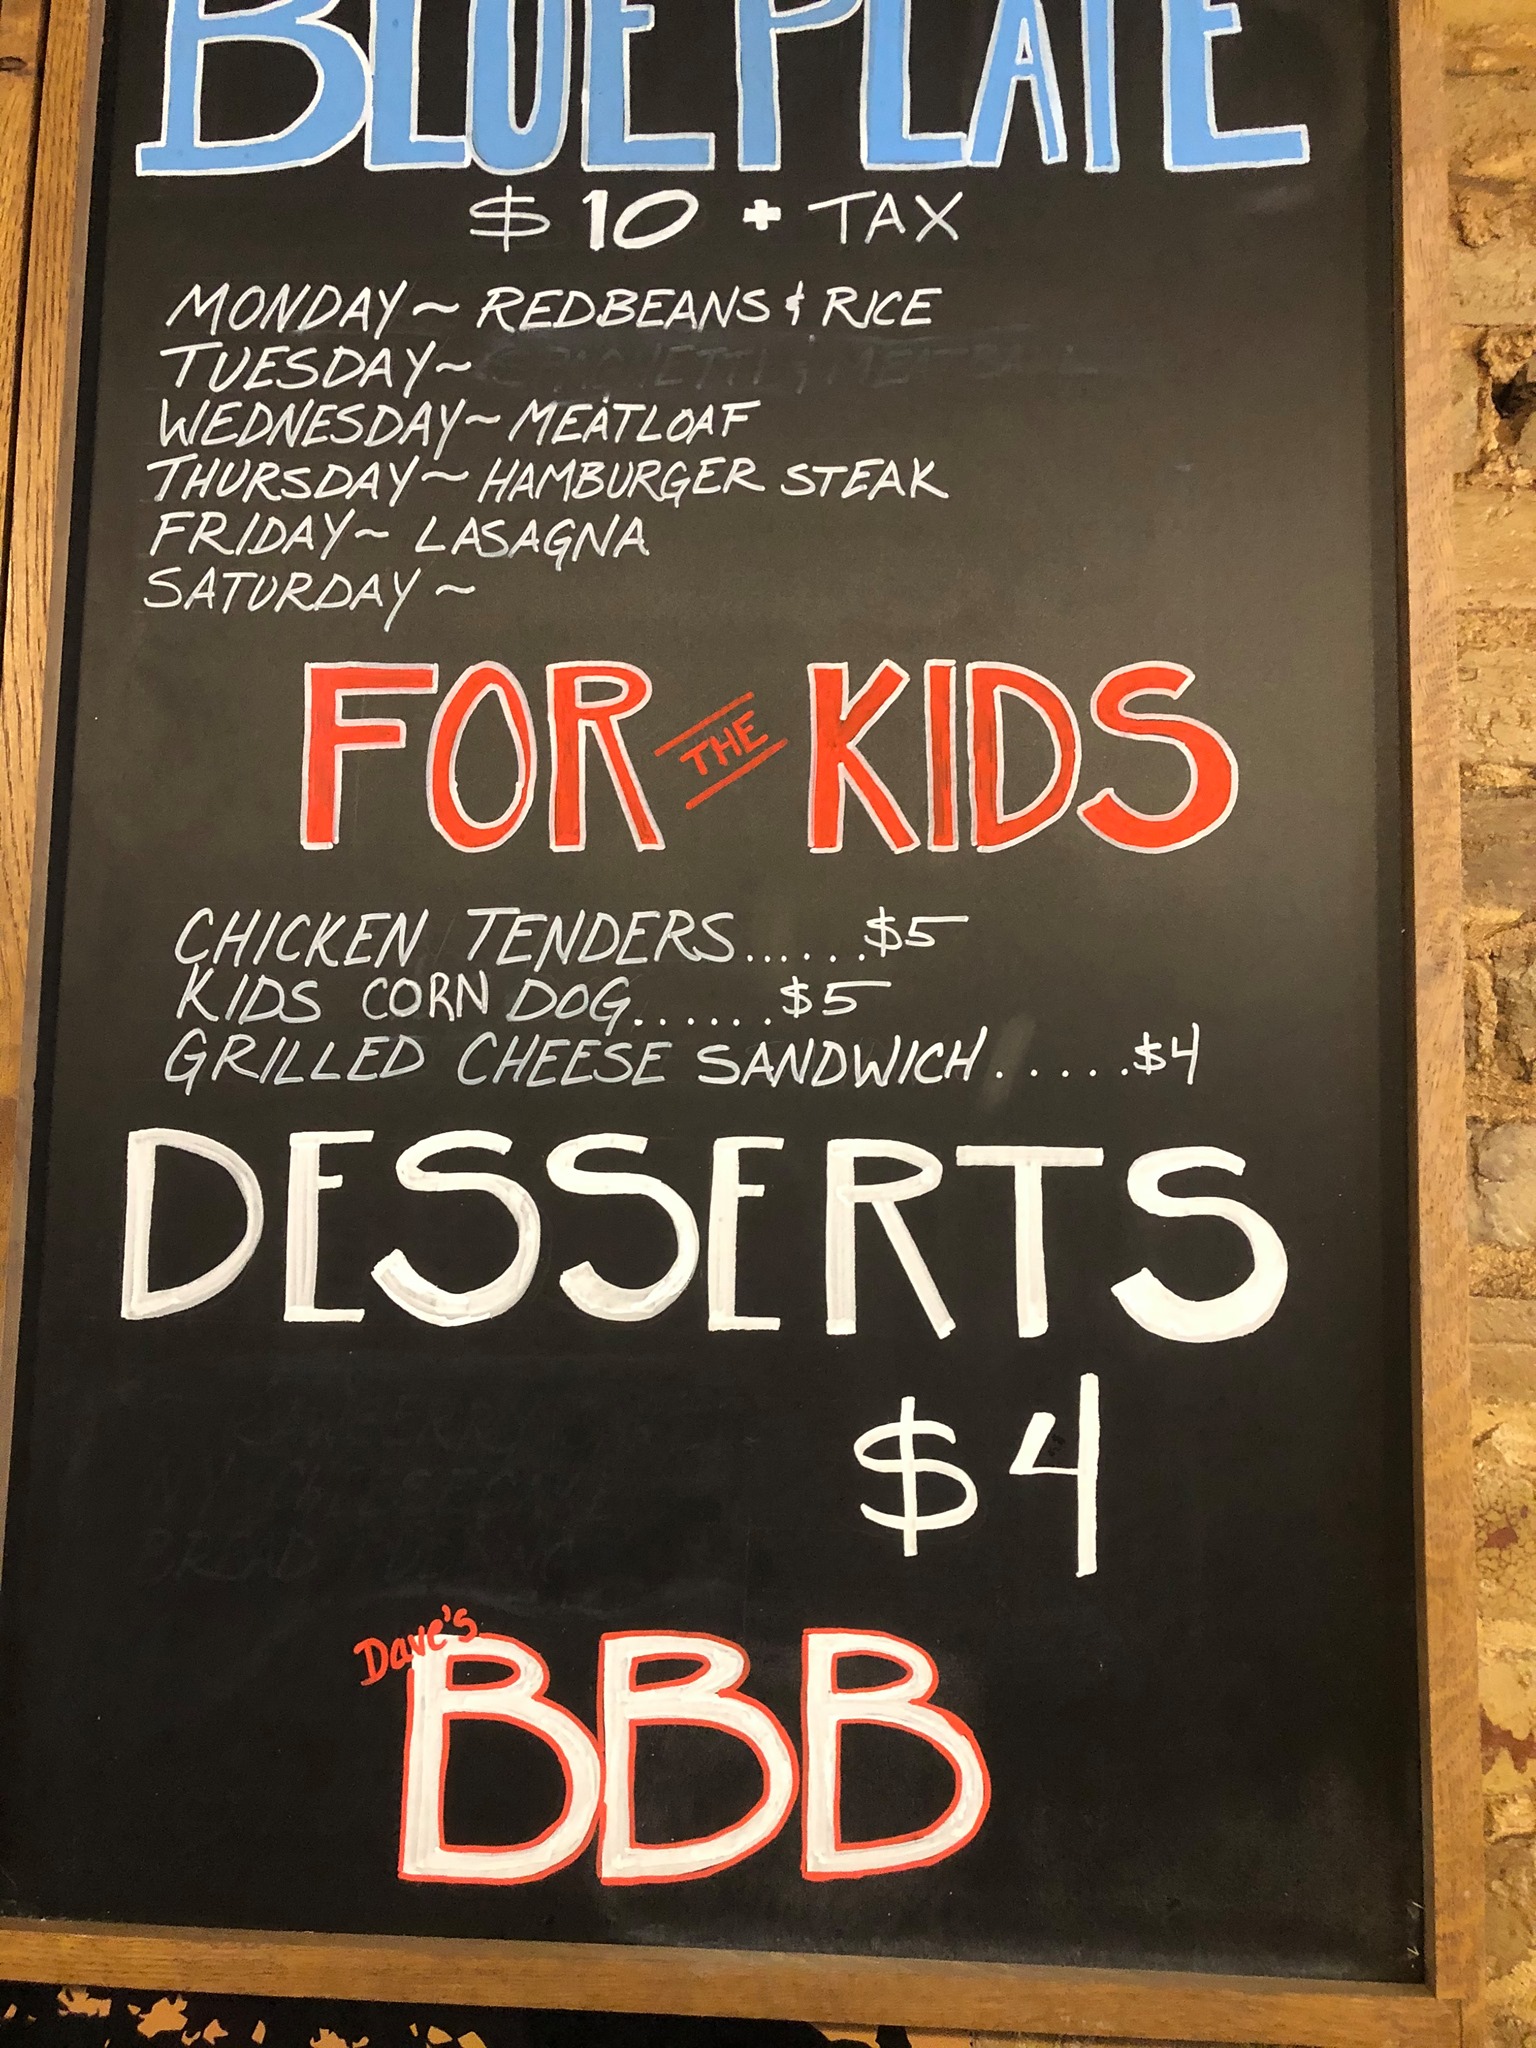 BLUE PLATE
$10 + TAX
MONDAY~ REDBEANS & RICE
TUESDAY~ SPAGHETTI & MEATBALL
WEDNESDAY~ MEATLOAF
THURSDAY~ HAMBURGER STEAK
FRIDAY~ LASAGNA
SATURDAY~
FOR THE KIDS
CHICKEN TENDERS......$5
KIDS CORN DOG......$5
GRILLED CHEESE SANDWICH.....$4
DESSERTS
$4
BREAD PUDDING
Dave's
BBB